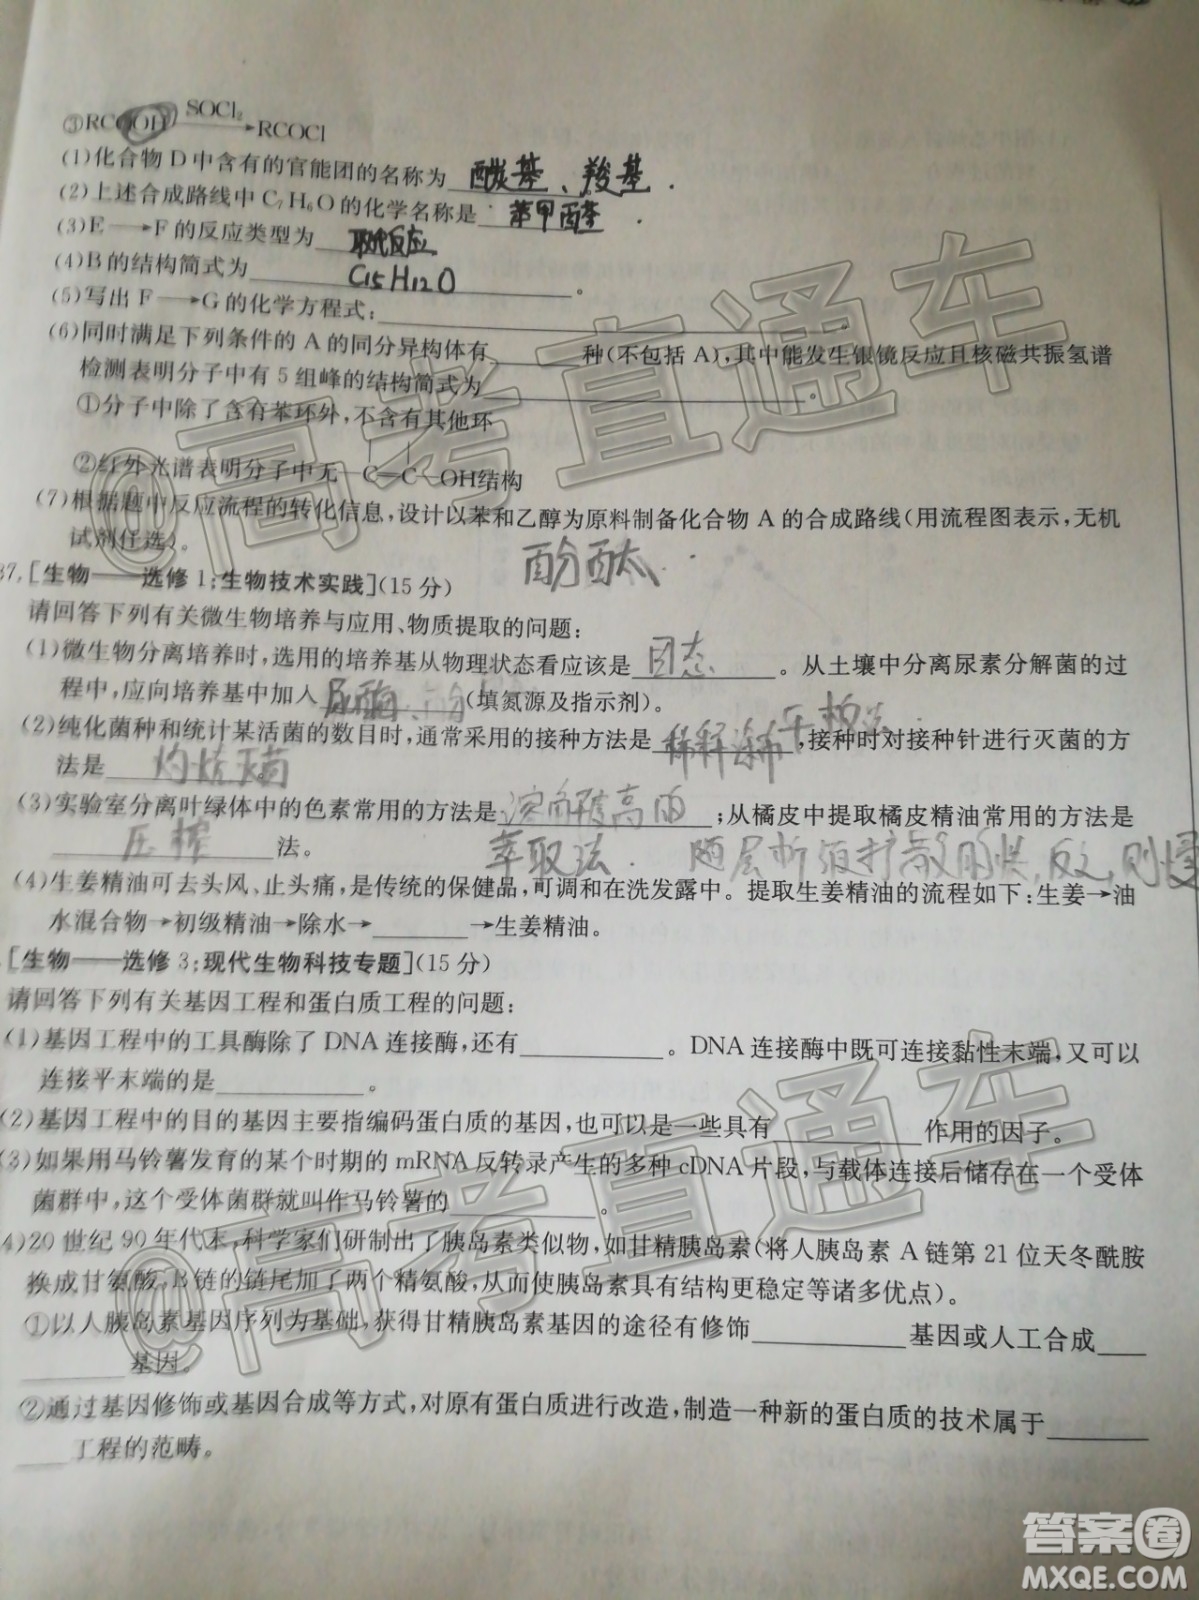 ③RCOOH SOCl₂→RCOCl
(1)化合物 D 中含有的官能团的名称为 羰基、羧基.
(2)上述合成路线中 C₇H₆O 的化学名称是 苯甲
(3)E→F 的反应类型为 取代反应
(4)B 的结构简式为 C15H12O 。
(5)写出 F→G 的化学方程式:
(6)同时满足下列条件的 A 的同分异构体有______种(不包括 A),其中能发生银镜反应且核磁共振氢谱
检测表明分子中有 5 组峰的结构简式为______。
①分子中除了含有苯环外,不含有其他环
②红外光谱表明分子中无—C—C—OH结构
(7)根据题中反应流程的转化信息,设计以苯和乙醇为原料制备化合物 A 的合成路线(用流程图表示,无机
试剂任选)。
酚酞.
37.[生物——选修 1:生物技术实践](15 分)
请回答下列有关微生物培养与应用、物质提取的问题:
(1)微生物分离培养时,选用的培养基从物理状态看应该是 固态 。从土壤中分离尿素分解菌的过
程中,应向培养基中加入______(填氮源及指示剂)。
(2)纯化菌种和统计某活菌的数目时,通常采用的接种方法是 稀释涂布平板法 ,接种时对接种针进行灭菌的方
法是 灼烧灭菌
(3)实验室分离叶绿体中的色素常用的方法是 溶解度高的 ;从橘皮中提取橘皮精油常用的方法是
压榨 法。 萃取法. 随层析液扩散的快,反之,则慢
(4)生姜精油可去头风、止头痛,是传统的保健品,可调和在洗发露中。提取生姜精油的流程如下:生姜→油
水混合物→初级精油→除水→______→生姜精油。
[生物——选修 3:现代生物科技专题](15 分)
请回答下列有关基因工程和蛋白质工程的问题:
(1)基因工程中的工具酶除了 DNA 连接酶,还有______。DNA 连接酶中既可连接黏性末端,又可以
连接平末端的是______。
(2)基因工程中的目的基因主要指编码蛋白质的基因,也可以是一些具有______作用的因子。
(3)如果用马铃薯发育的某个时期的 mRNA 反转录产生的多种 cDNA 片段,与载体连接后储存在一个受体
菌群中,这个受体菌群就叫作马铃薯的______。
(4)20 世纪 90 年代末,科学家们研制出了胰岛素类似物,如甘精胰岛素(将人胰岛素 A 链第 21 位天冬酰胺
换成甘氨酸,B 链的链尾加了两个精氨酸,从而使胰岛素具有结构更稳定等诸多优点)。
①以人胰岛素基因序列为基础,获得甘精胰岛素基因的途径有修饰______基因或人工合成___
______基因。
②通过基因修饰或基因合成等方式,对原有蛋白质进行改造,制造一种新的蛋白质的技术属于______
___工程的范畴。
@高考直通车
@高考直通车
答案圈
MXQE.COM